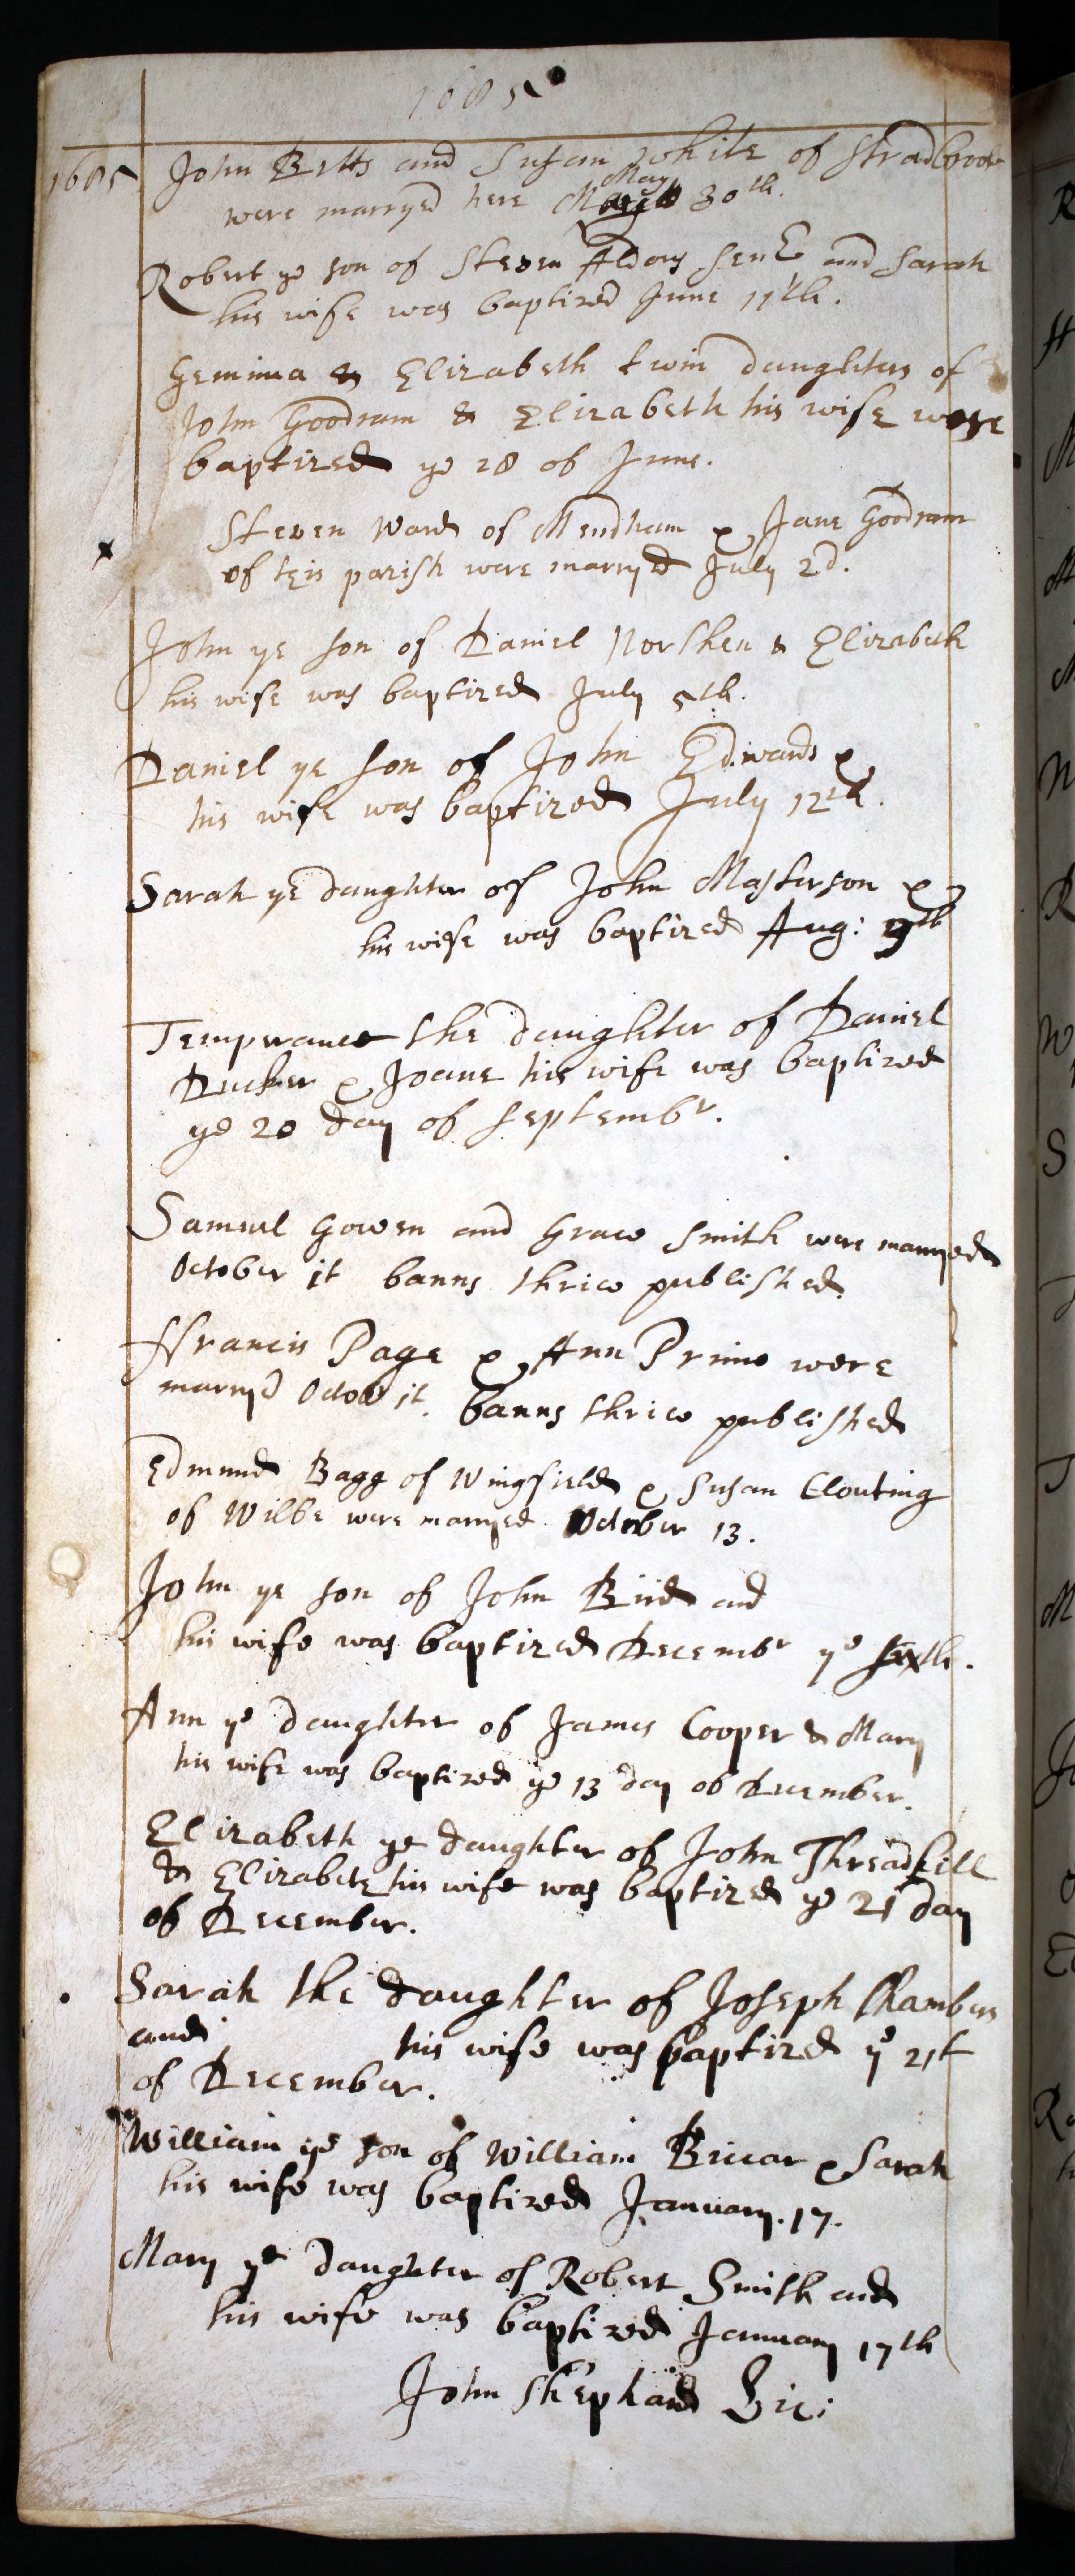 1685
1685 John Betts and Susan White of Stradbrook
were marryed here May 30th.
Robert ye son of Steven Aldous senr and Sarah
his wife was baptized June 11th.
Gemima & Elizabeth twin daughters of
John Goodram & Elizabeth his wife were
baptized ye 28 of June.
Steven Ward of Mendham & Jane Goodram
of this parish were marryed July 2d.
John ye son of Daniel Norshen & Elizabeth
his wife was baptized July 5th.
Daniel ye son of John Edwards &
his wife was baptized July 12th.
Sarah ye daughter of John Masterson &
his wife was baptized Aug: 9th
Temperance the daughter of Daniel
Ducker & Joane his wife was baptized
ye 20 day of septembr.
Samuel Gowen and Grace Smith were marryed
October 1t banns thrice published
ffrancis Page & Ann Prime were
marryd Octor 1t. banns thrice published
Edmund Bagg of Wingfield & Susan Clouting
of Wilbe were marryed October 13.
John ye son of John Bird and
his wife was baptized Decembr ye sixth.
Ann ye daughter of James Cooper & Mary
his wife was baptized ye 13 day of December.
Elizabeth ye daughter of John Threadkill
& Elizabeth his wife was baptized ye 21 day
of December.
Sarah the daughter of Joseph Chambers
and his wife was baptized ye 21t
of December.
William ye son of William Briccar & Sarah
his wife was baptized January. 17.
Mary ye daughter of Robert Smith and
his wife was baptized January 17th
John Shephard Vic: